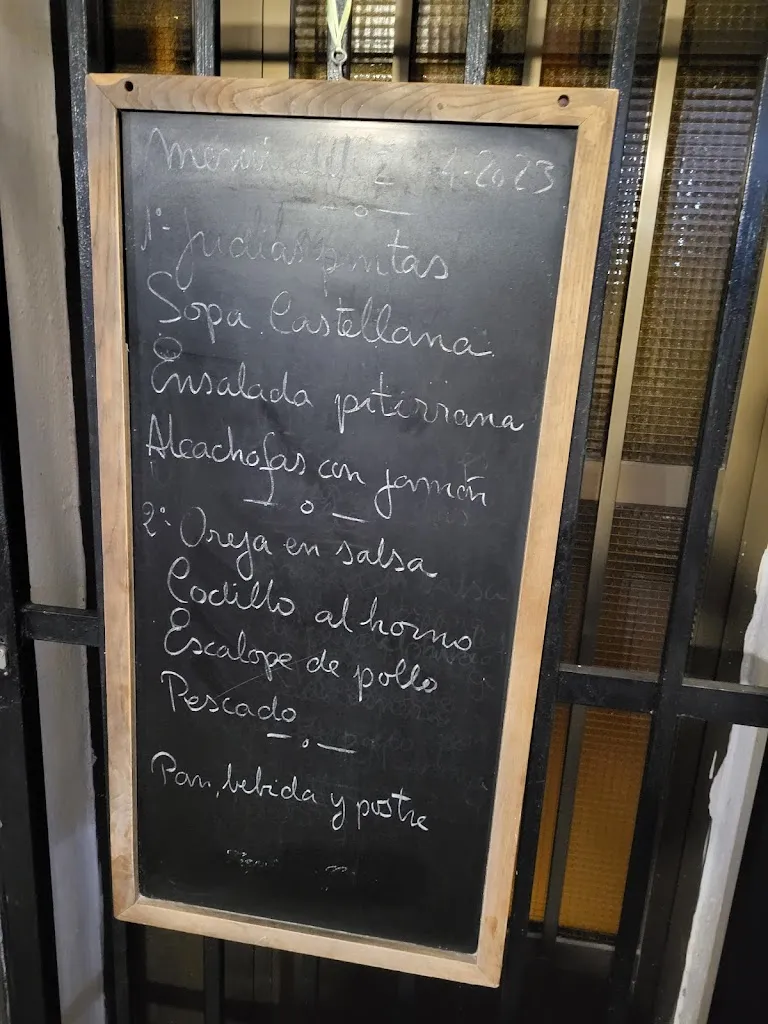 Menú del 2 4-2023
1º- Judías pintas
Sopa Castellana
Ensalada pitirrana
Alcachofas con jamón
2º- Oreja en salsa
Codillo al horno
Escalope de pollo
Pescado
Pan, bebida y postre